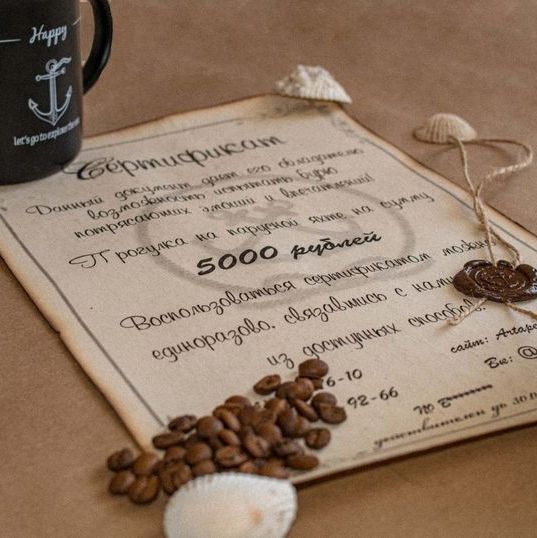 Happy
let's go to explore the
Сертификат
Данный документ даёт его обладателю
возможность испытать бурю
потрясающих эмоций и впечатлений!
Прогулка на парусной яхте на сумму
5000 рублей
Воспользоваться сертификатом можно
единоразово, связавшись с нами
из доступных способов:
76-10
92-66
сайт: Artape
Вк: @
№ В********
действителен до 30.0